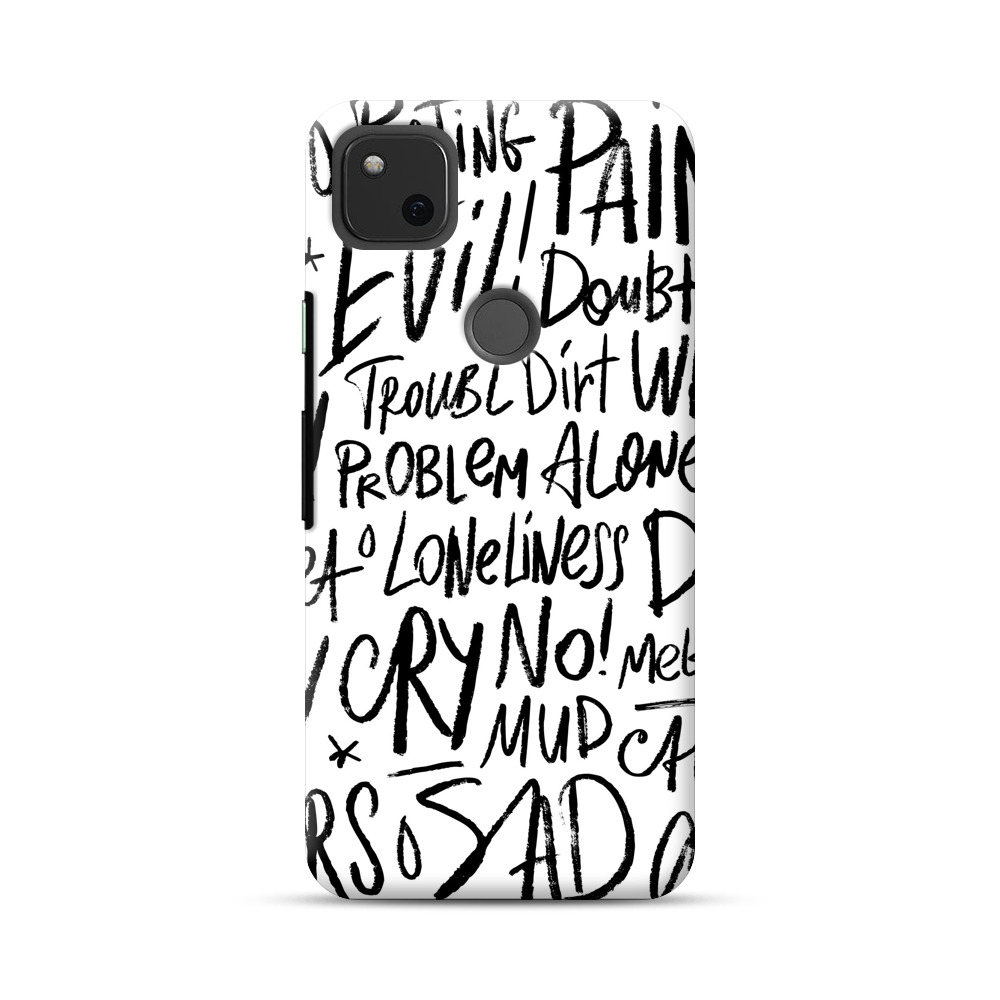 PAIN
EVil! DouBt
TROUBL Dirt
PROBLEM ALONE
LONELINESS D
CRY NO!
MUD
SAD